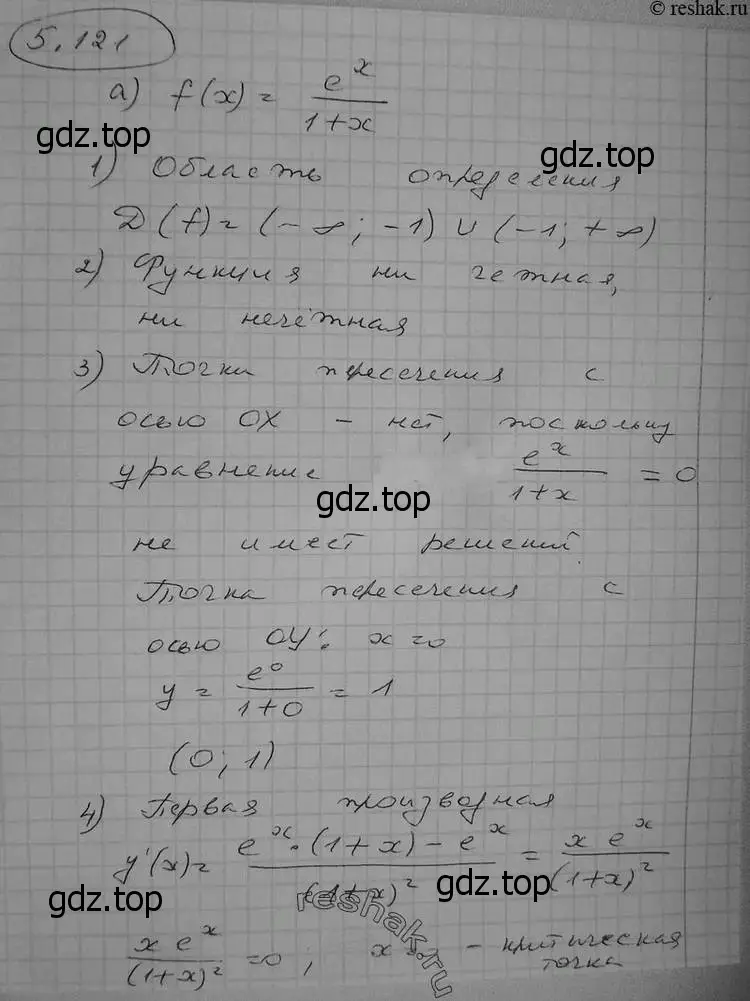 © reshak.ru
5.121
а) f(x) = e^x / (1+x)
gdz.top gdz.top
1) Область определения
D(f) = (-∞; -1) ∪ (-1; +∞)
2) Функция ни четная,
ни нечётная
3) Точки пересечения с
осью OX - нет, поскольку
уравнение e^x / (1+x) = 0
gdz.top
не имеет решений.
Точка пересечения с
осью OY: x=0
y = e^0 / (1+0) = 1
(0; 1)
4) Первая производная
y'(x) = (e^x·(1+x) - e^x) / (1+x)^2 = x e^x / (1+x)^2
gdz.top gdz.top
reshak.ru
x e^x / (1+x)^2 = 0; x = - критическая
точка